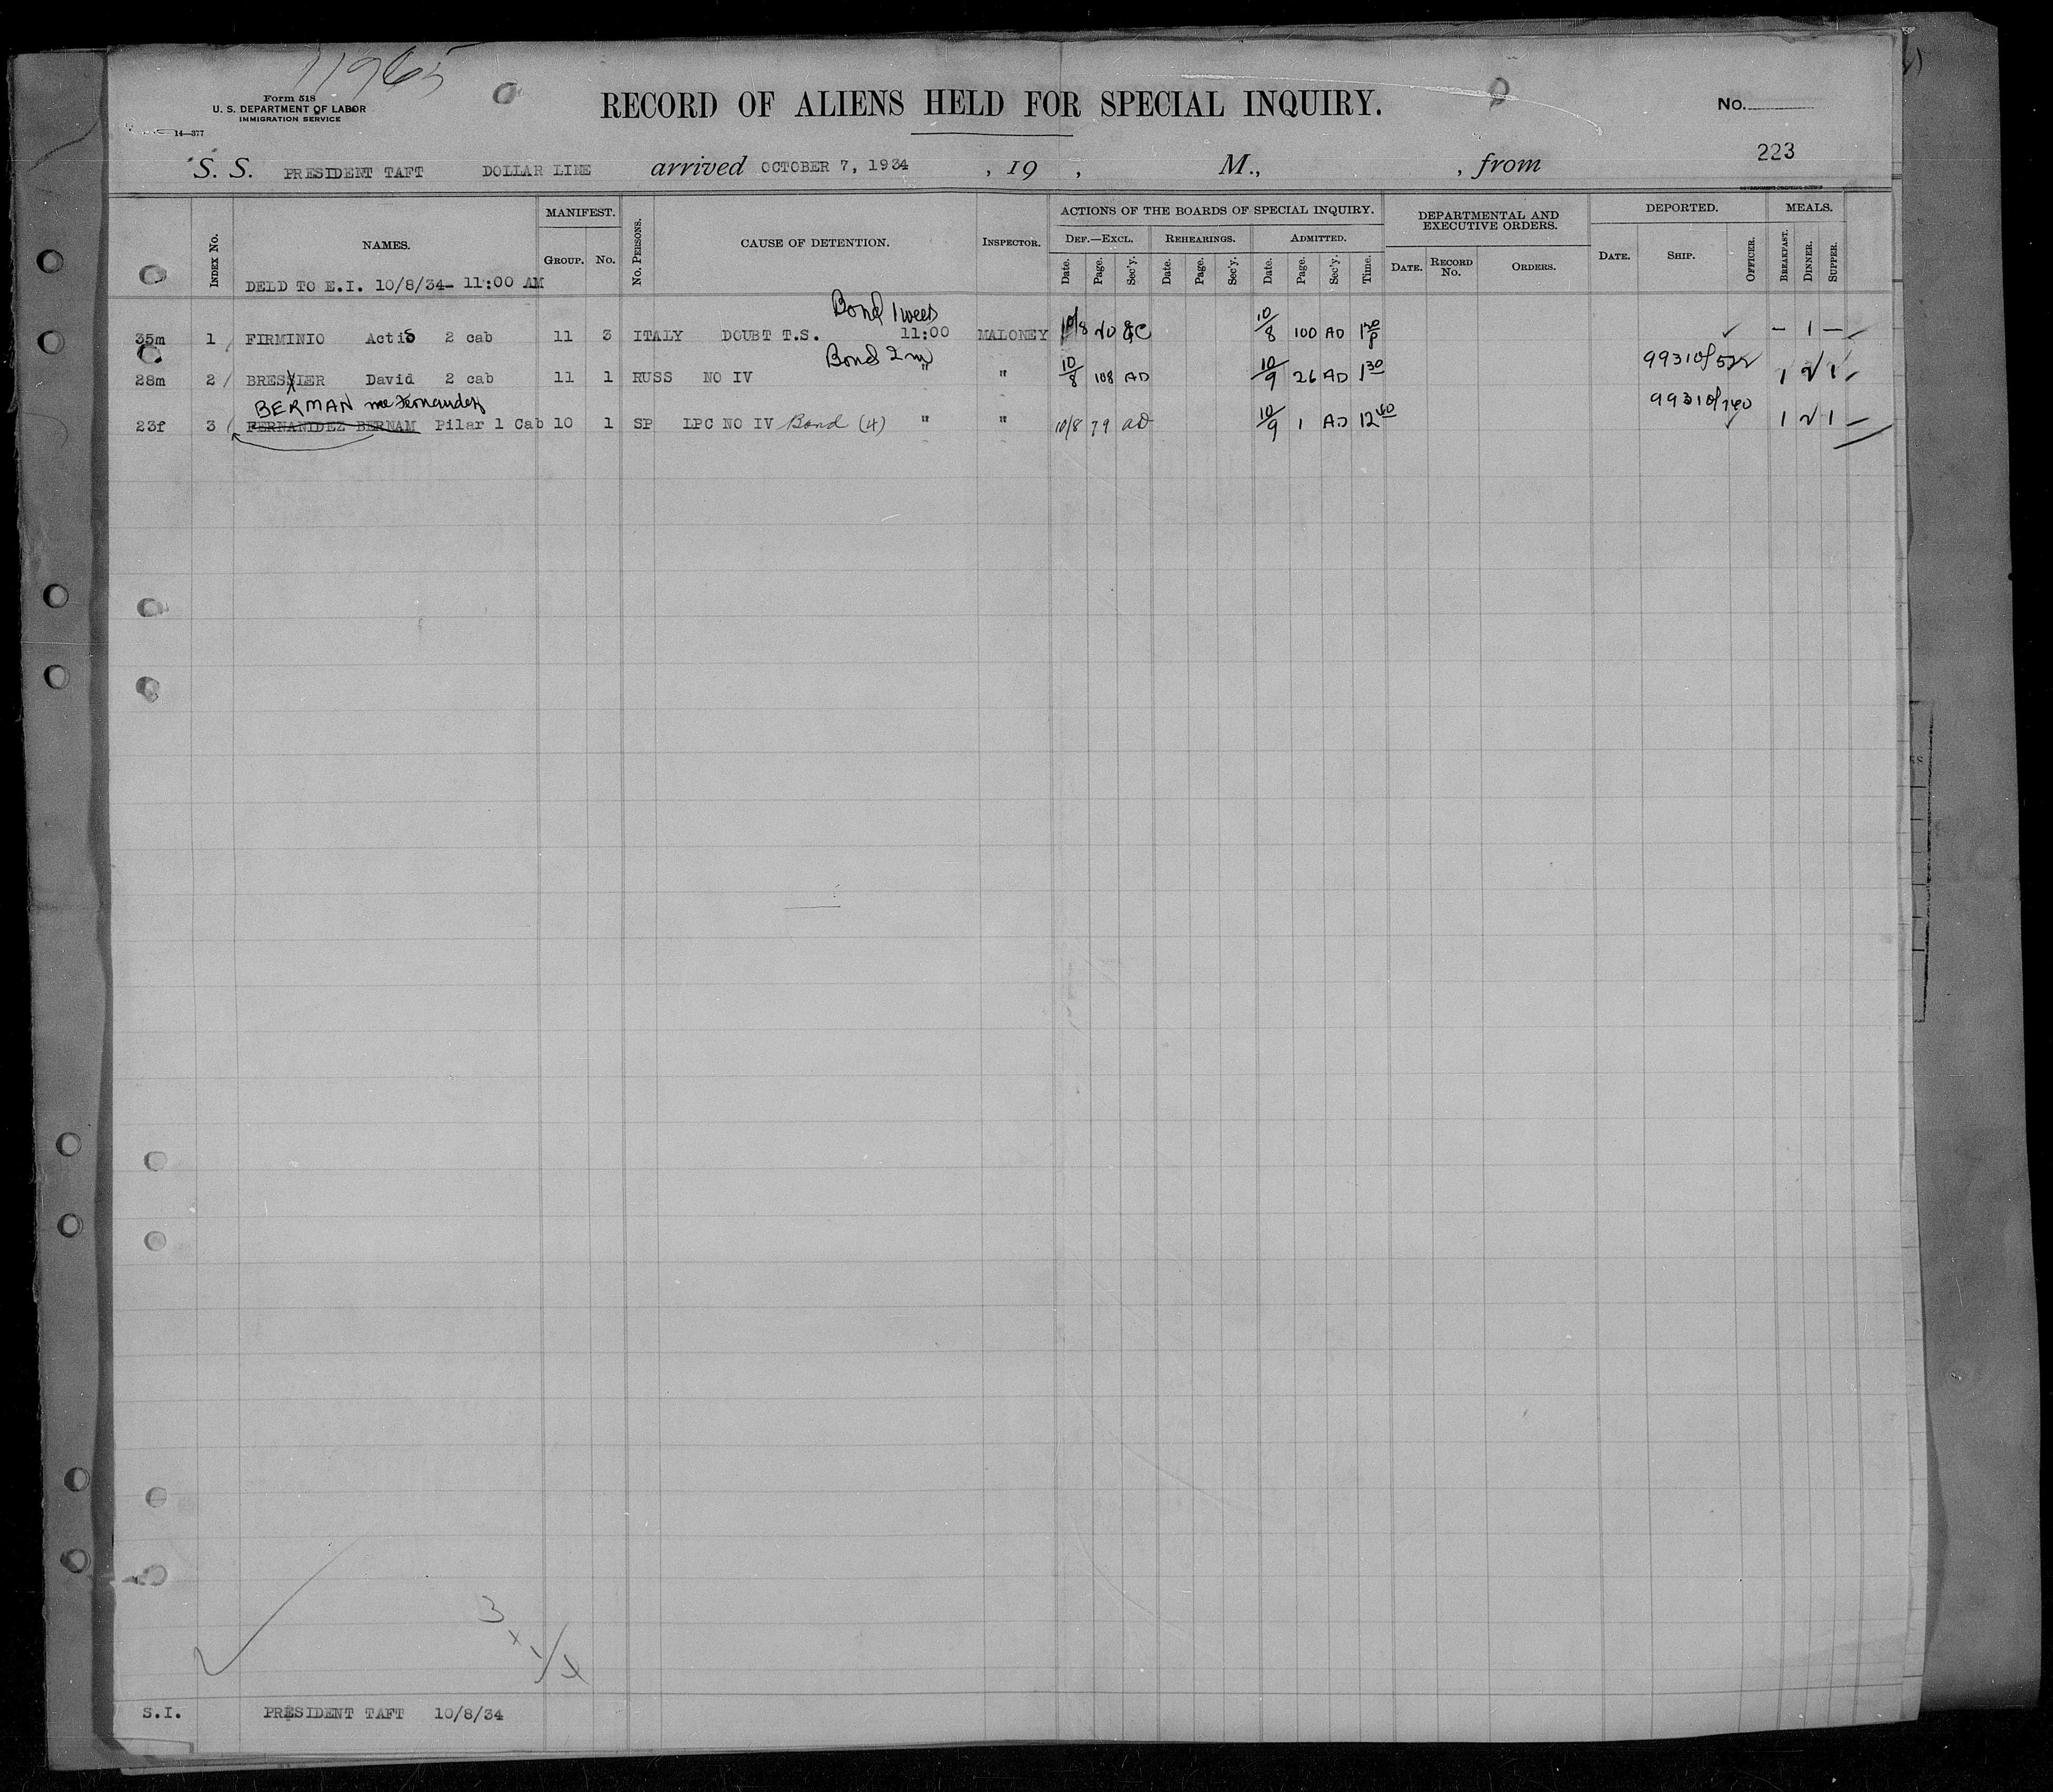 11965
Form 518
U. S. DEPARTMENT OF LABOR
IMMIGRATION SERVICE
14—377
RECORD OF ALIENS HELD FOR SPECIAL INQUIRY.
No.
223
S. S. PRESIDENT TAFT DOLLAR LINE arrived OCTOBER 7, 1934 , 19 , M., , from
INDEX No.
NAMES.
MANIFEST.
GROUP. No.
No. PERSONS.
CAUSE OF DETENTION.
INSPECTOR.
ACTIONS OF THE BOARDS OF SPECIAL INQUIRY.
DEF.—EXCL. REHEARINGS. ADMITTED.
Date. Page. Sec'y. Date. Page. Sec'y. Date. Page. Sec'y. Time.
DEPARTMENTAL AND
EXECUTIVE ORDERS.
DATE. RECORD No. ORDERS.
DEPORTED.
DATE. SHIP. OFFICER.
MEALS.
BREAKFAST. DINNER. SUPPER.
DELD TO E.I. 10/8/34- 11:00 AM
Bond 1 week
35m 1 FIRMINIO Actis 2 cab 11 3 ITALY DOUBT T.S. 11:00 MALONEY 10/8 20 10/8 100 AD 1 – 1 –
Bond 2 m 99310/522
28m 2 BRESSIER David 2 cab 11 1 RUSS NO IV " " 10/8 108 AD 10/9 26 AD 1 30 1 2 1
BERMAN née Fernandez 99310/740
23f 3 FERNANIDEZ BERNAM Pilar 1 Cab 10 1 SP LPC NO IV Bond (4) " " 10/8 79 AD 10/9 1 AD 12 40 1 2 1
3
S.I. PRESIDENT TAFT 10/8/34